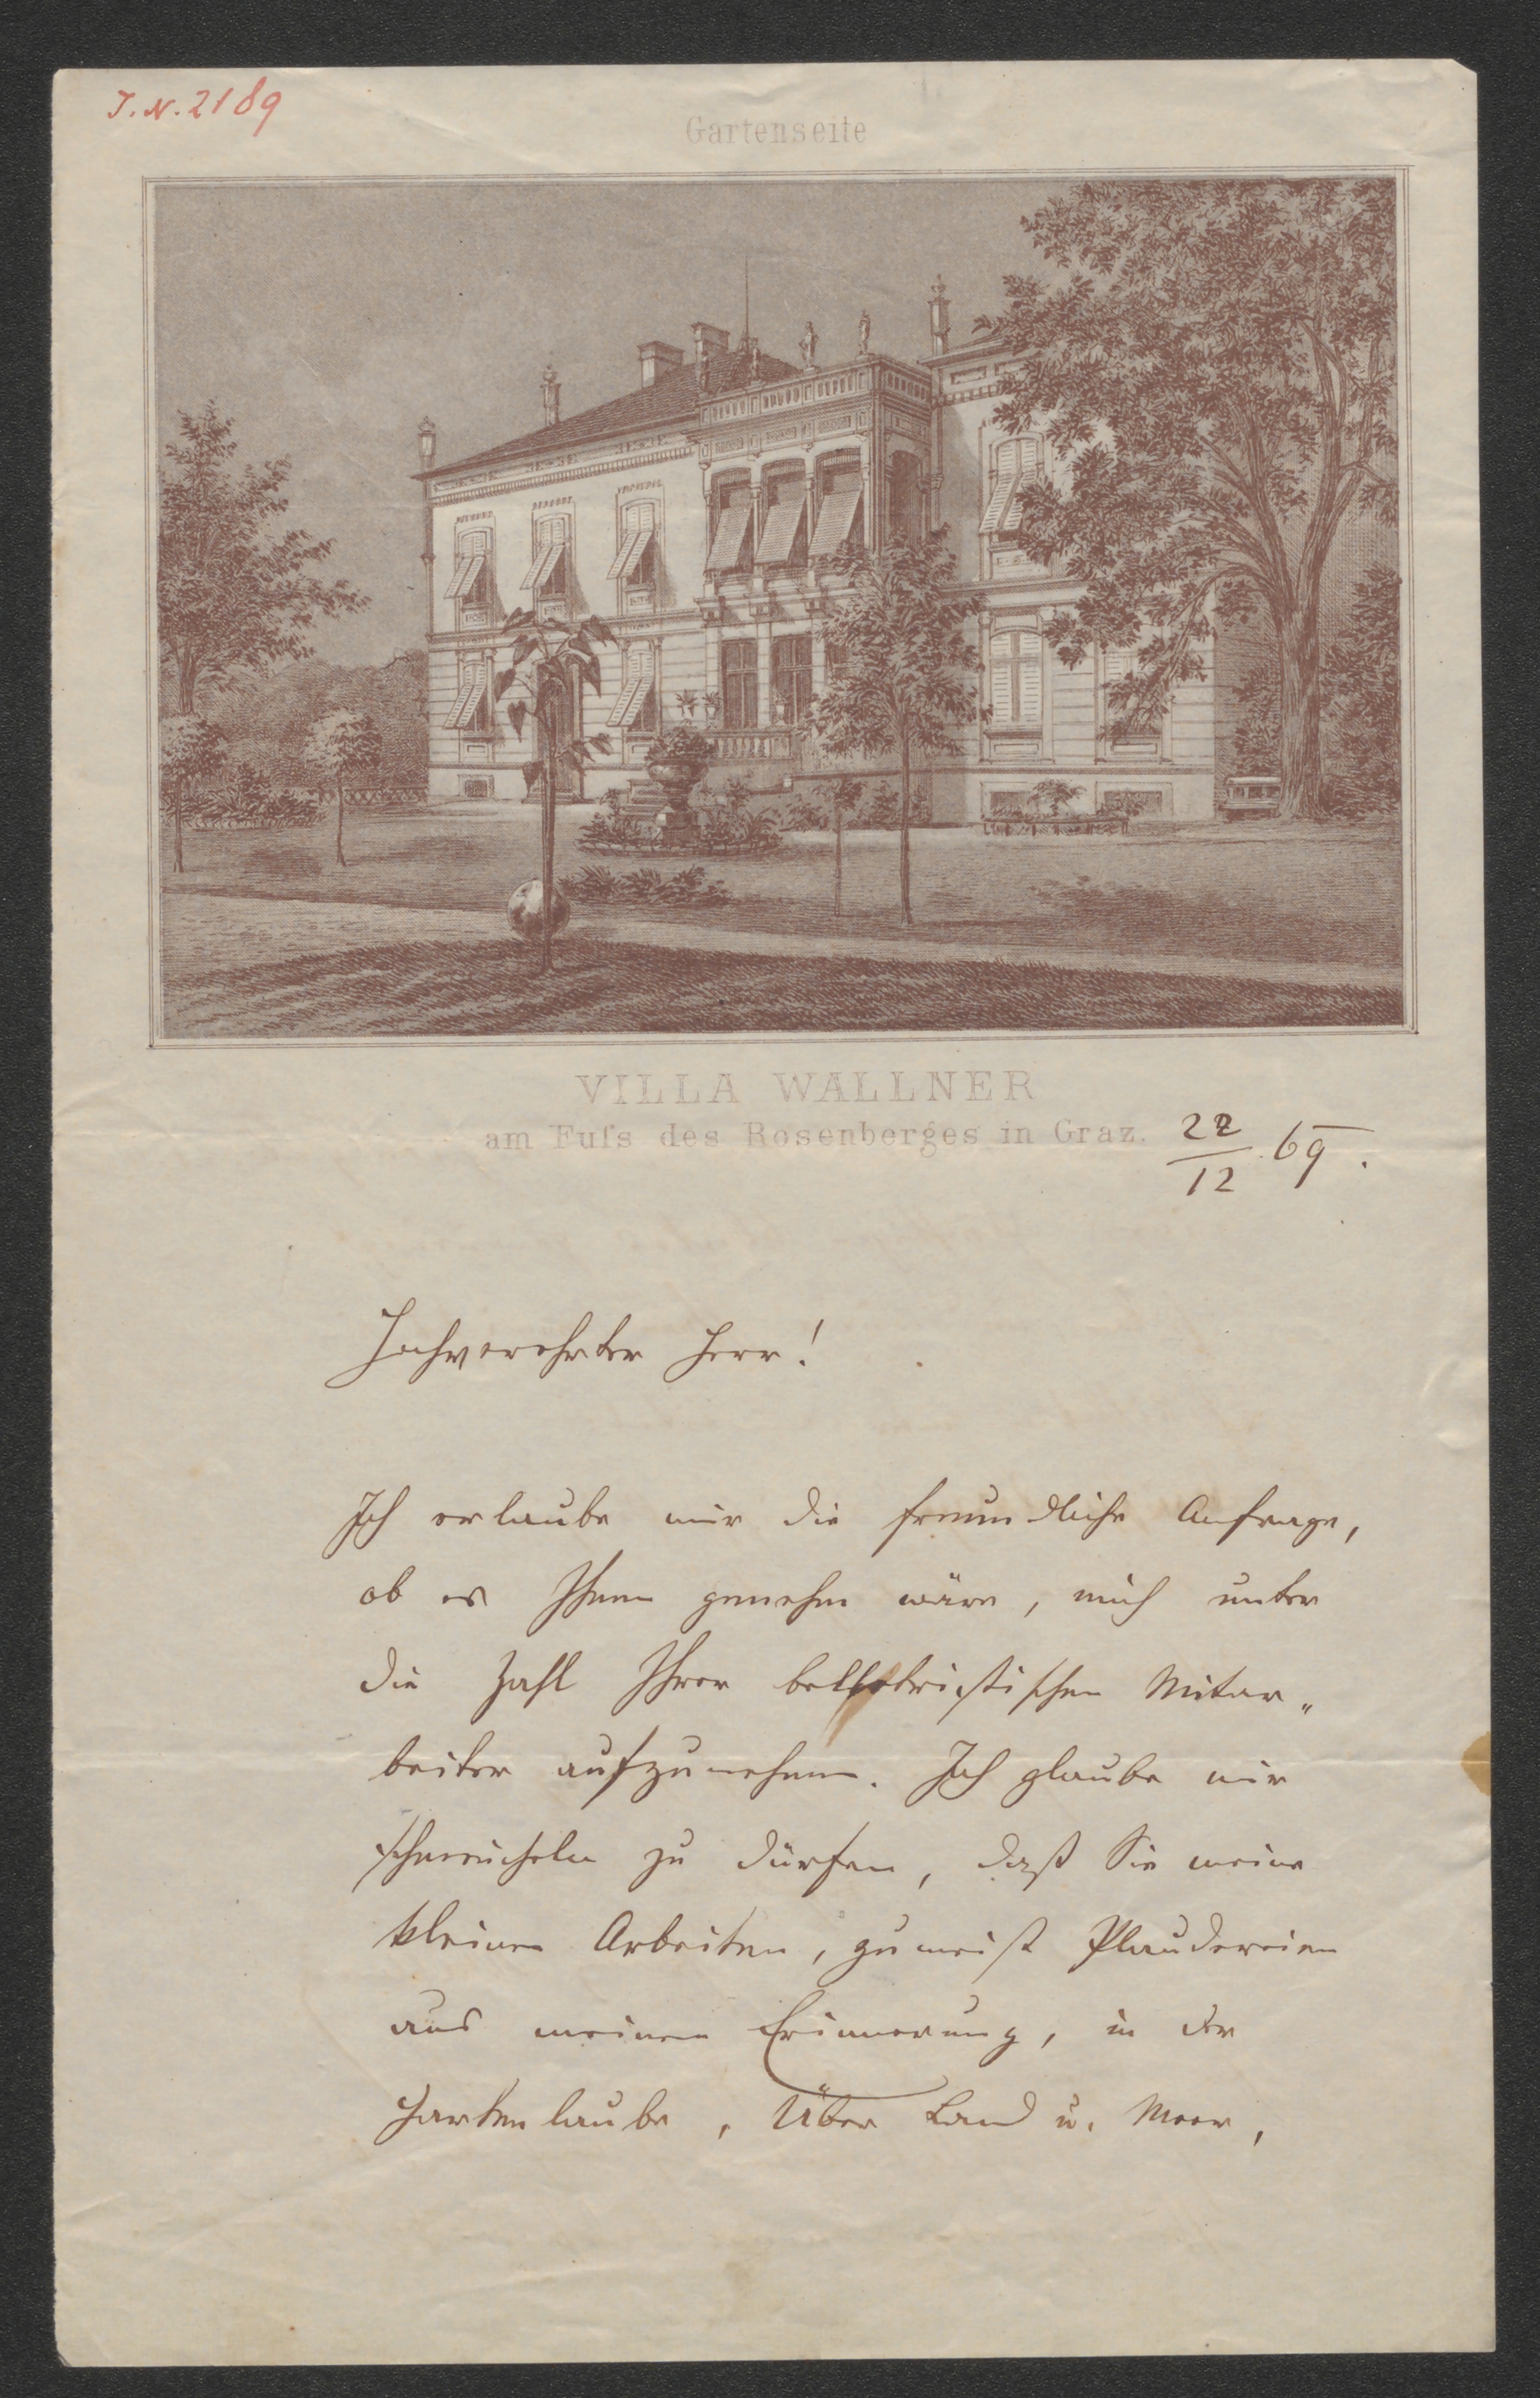 J. N. 2189
Gartenseite
VILLA WALLNER
am Fuſs des Rosenberges in Graz.
22/12. 69.
Hochverehrter Herr!
Ich erlaube mir die freundliche Anfrage,
ob es Ihnen genehm wäre, mich unter
die Zahl Ihrer belletristischen Mitar„
beiter aufzunehmen. Ich glaube mir
schmeicheln zu dürfen, daß Sie meine
kleinen Arbeiten, zumeist Plaudereien
aus meinen Erinnerung, in der
Gartenlaube, Über Land u. Meer,